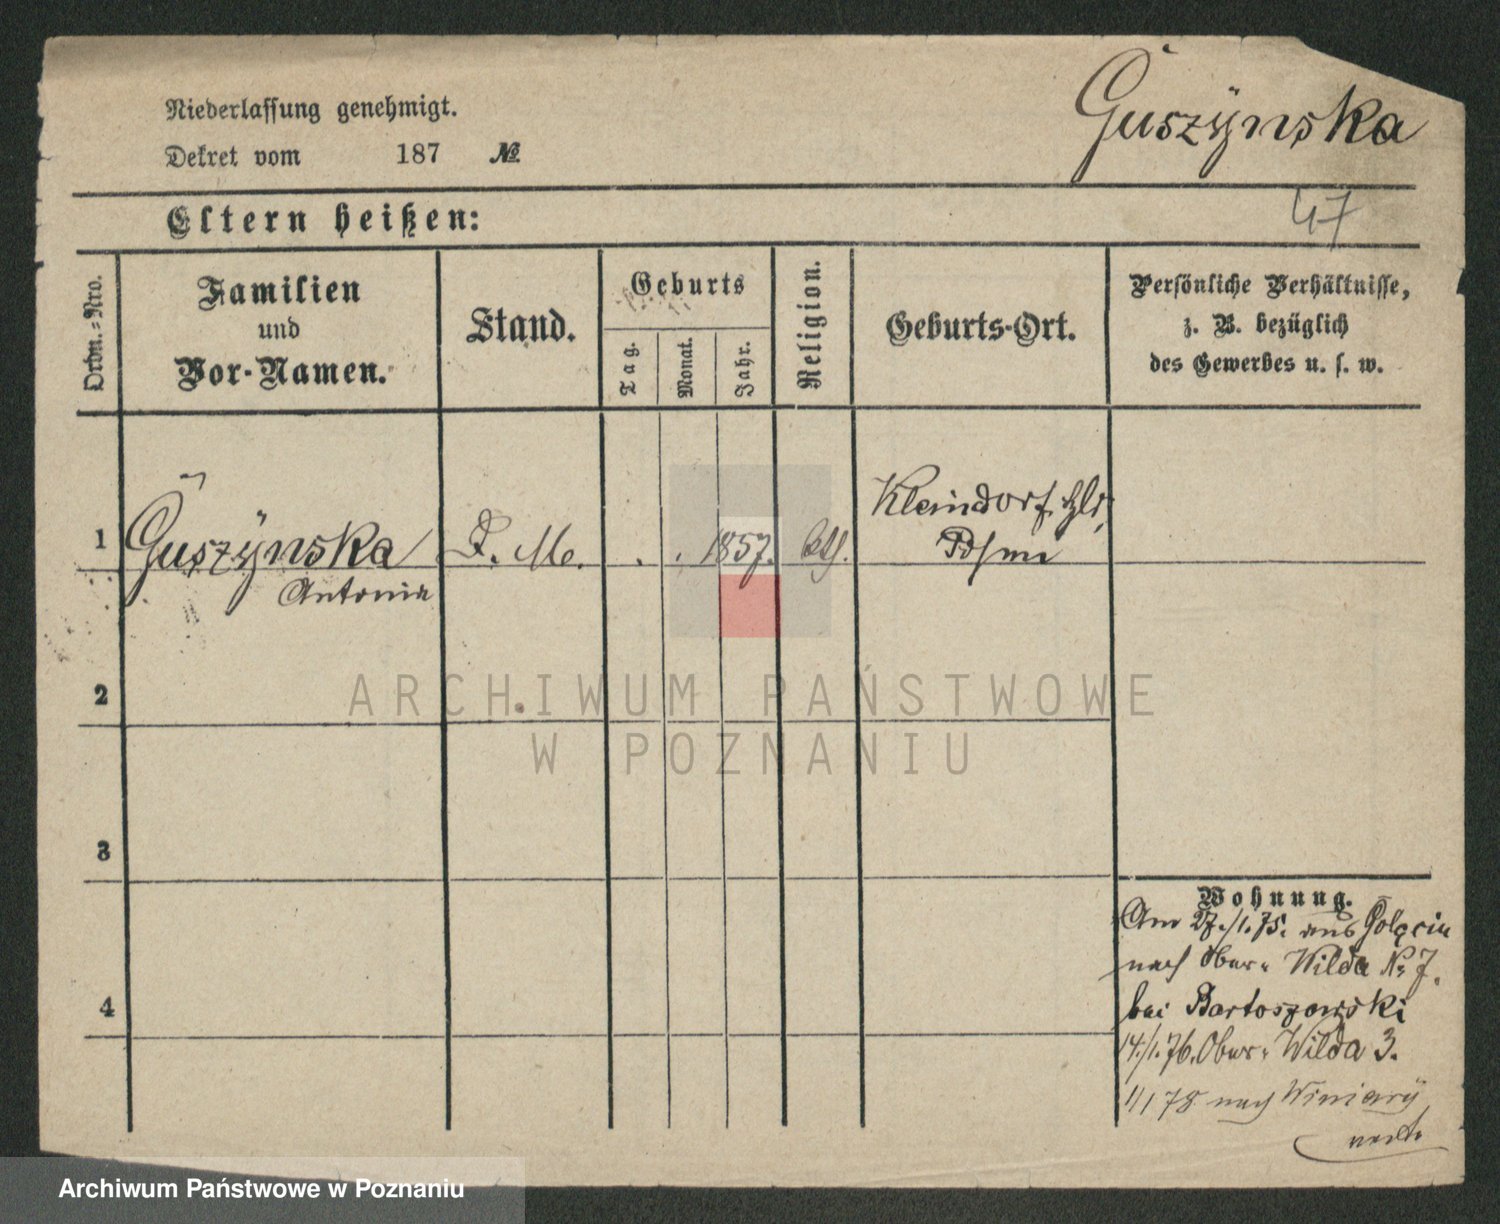 Guszÿnska
Niederlassung genehmigt.
Dekret vom 187 №
47
Eltern heißen:
Ordn.=Nro.
Familien
und
Vor-Namen.
Stand.
Geburts
Tag.
Monat.
Jahr.
Religion.
Geburts-Ort.
Persönliche Verhältnisse,
z. B. bezüglich
des Gewerbes u. s. w.
1
Guszÿnska
Antonia
D. M.
. . 1857.
kth.
Kleindorf Hld,
Posen
2
3
4
Wohnung.
Am 27./1.75. aus Golęcin
nach Ober= Wilda No 7.
bei Bartoszowski
14./1.76. Ober= Wilda 3.
1/1 78 nach Winiarÿ
ARCHIWUM PAŃSTWOWE
W POZNANIU
Archiwum Państwowe w Poznaniu